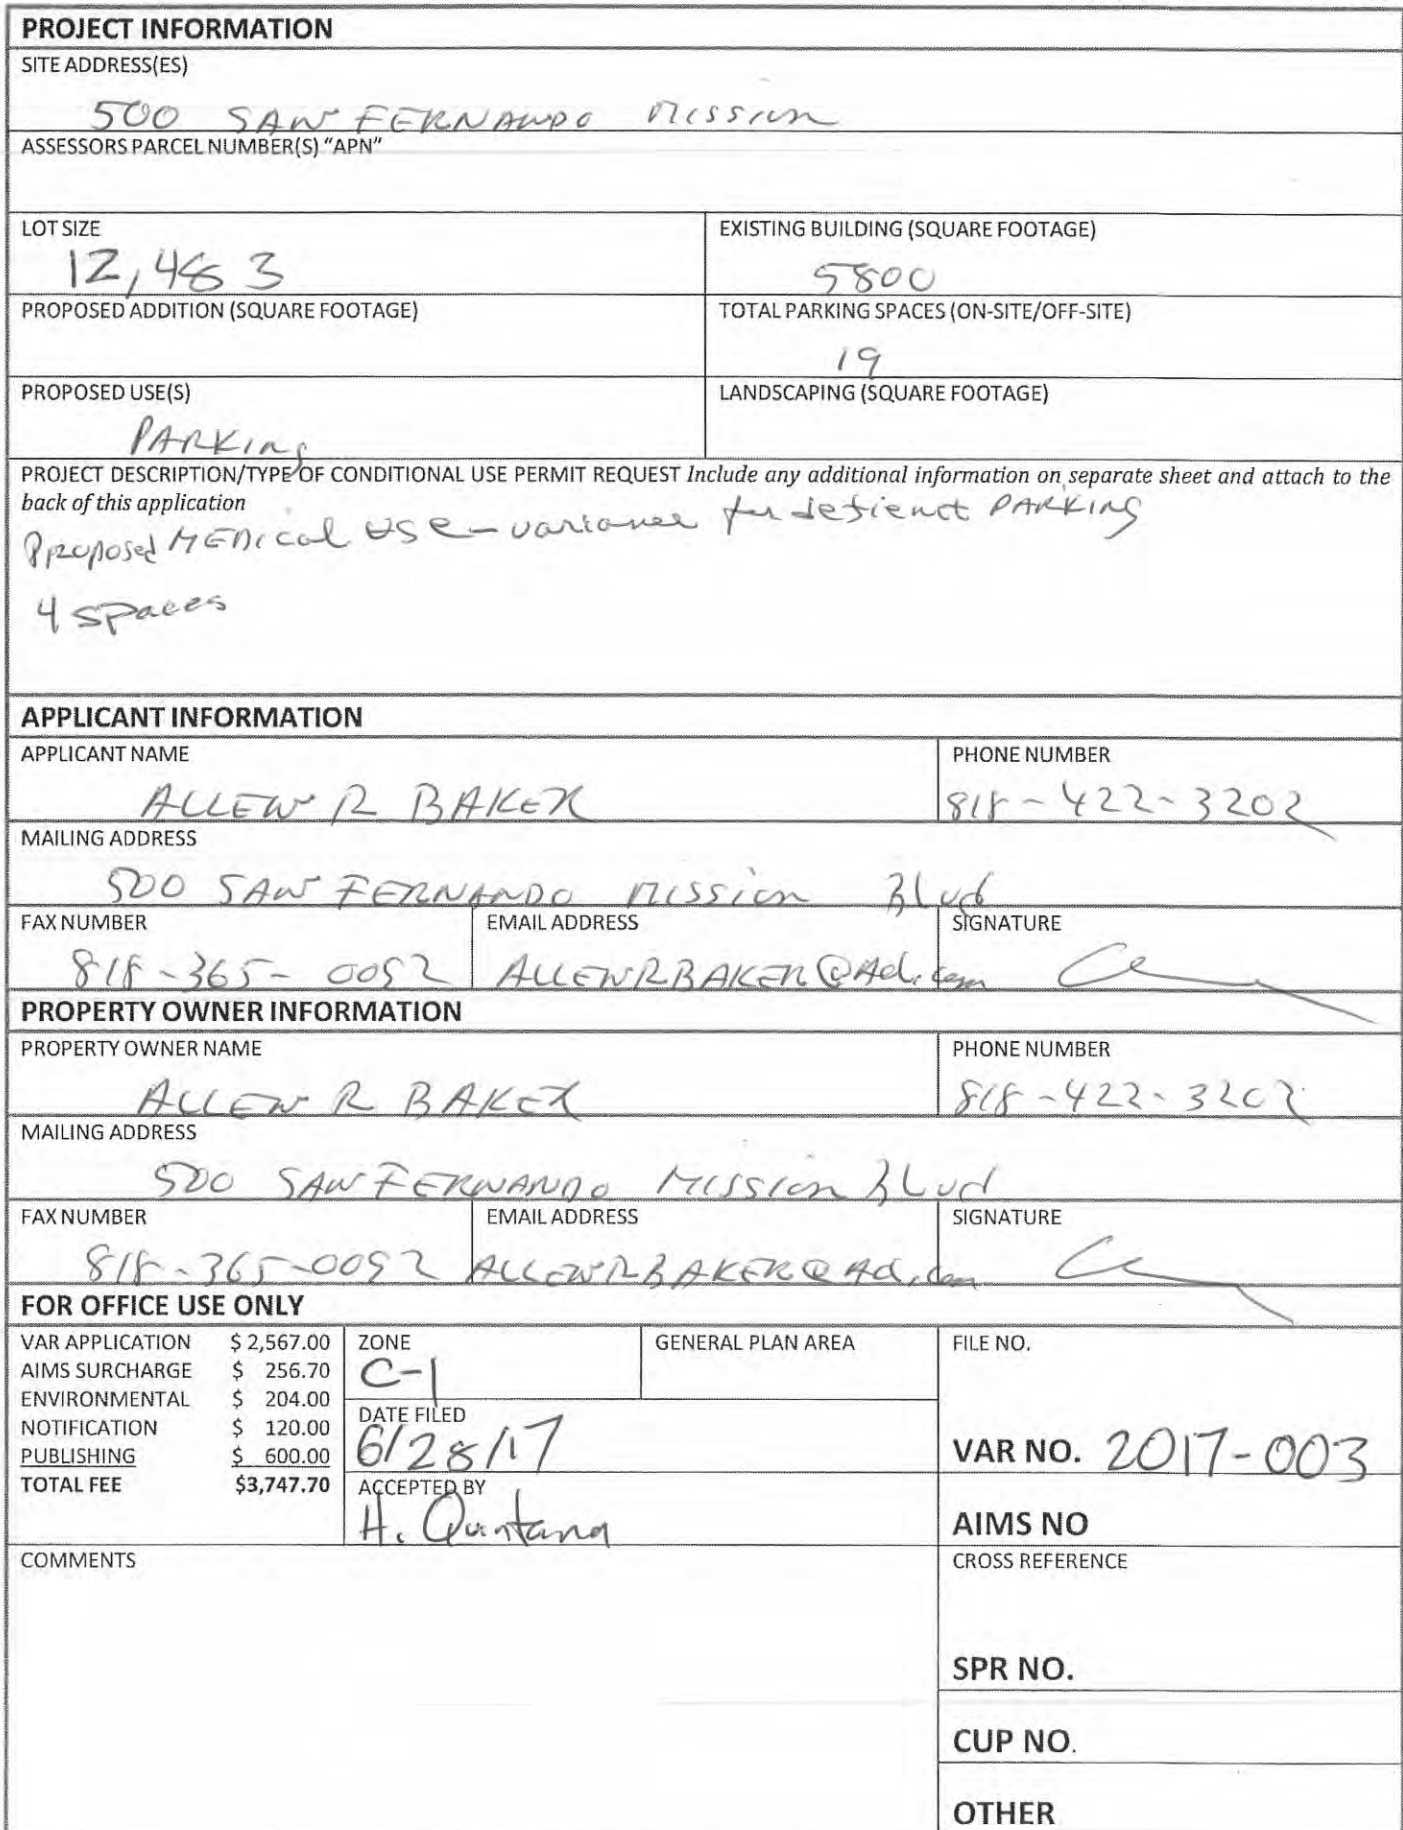 PROJECT INFORMATION
SITE ADDRESS(ES)
500 SAN FERNANDO Mission
ASSESSORS PARCEL NUMBER(S) "APN"
LOT SIZE
12,483
EXISTING BUILDING (SQUARE FOOTAGE)
5800
PROPOSED ADDITION (SQUARE FOOTAGE)
TOTAL PARKING SPACES (ON-SITE/OFF-SITE)
19
PROPOSED USE(S)
PARKing
LANDSCAPING (SQUARE FOOTAGE)
PROJECT DESCRIPTION/TYPE OF CONDITIONAL USE PERMIT REQUEST Include any additional information on separate sheet and attach to the
back of this application
Proposed MEDical USe - variance for defienct PARKING
4 spaces
APPLICANT INFORMATION
APPLICANT NAME
ALLEN R BAKER
PHONE NUMBER
818-422-3202
MAILING ADDRESS
500 SAN FERNANDO Mission Blvd
FAX NUMBER
818-365-0052
EMAIL ADDRESS
ALLENRBAKER@
SIGNATURE
PROPERTY OWNER INFORMATION
PROPERTY OWNER NAME
ALLEN R BAKER
PHONE NUMBER
818-422-3202
MAILING ADDRESS
500 SAN FERNANDO Mission Blvd
FAX NUMBER
818-365-0052
EMAIL ADDRESS
ALLENRBAKER@
SIGNATURE
FOR OFFICE USE ONLY
VAR APPLICATION $ 2,567.00
AIMS SURCHARGE $ 256.70
ENVIRONMENTAL $ 204.00
NOTIFICATION $ 120.00
PUBLISHING $ 600.00
TOTAL FEE $3,747.70
ZONE
C-1
GENERAL PLAN AREA
DATE FILED
6/28/17
ACCEPTED BY
H. Quintana
FILE NO.
VAR NO. 2017-003
AIMS NO
COMMENTS
CROSS REFERENCE
SPR NO.
CUP NO.
OTHER